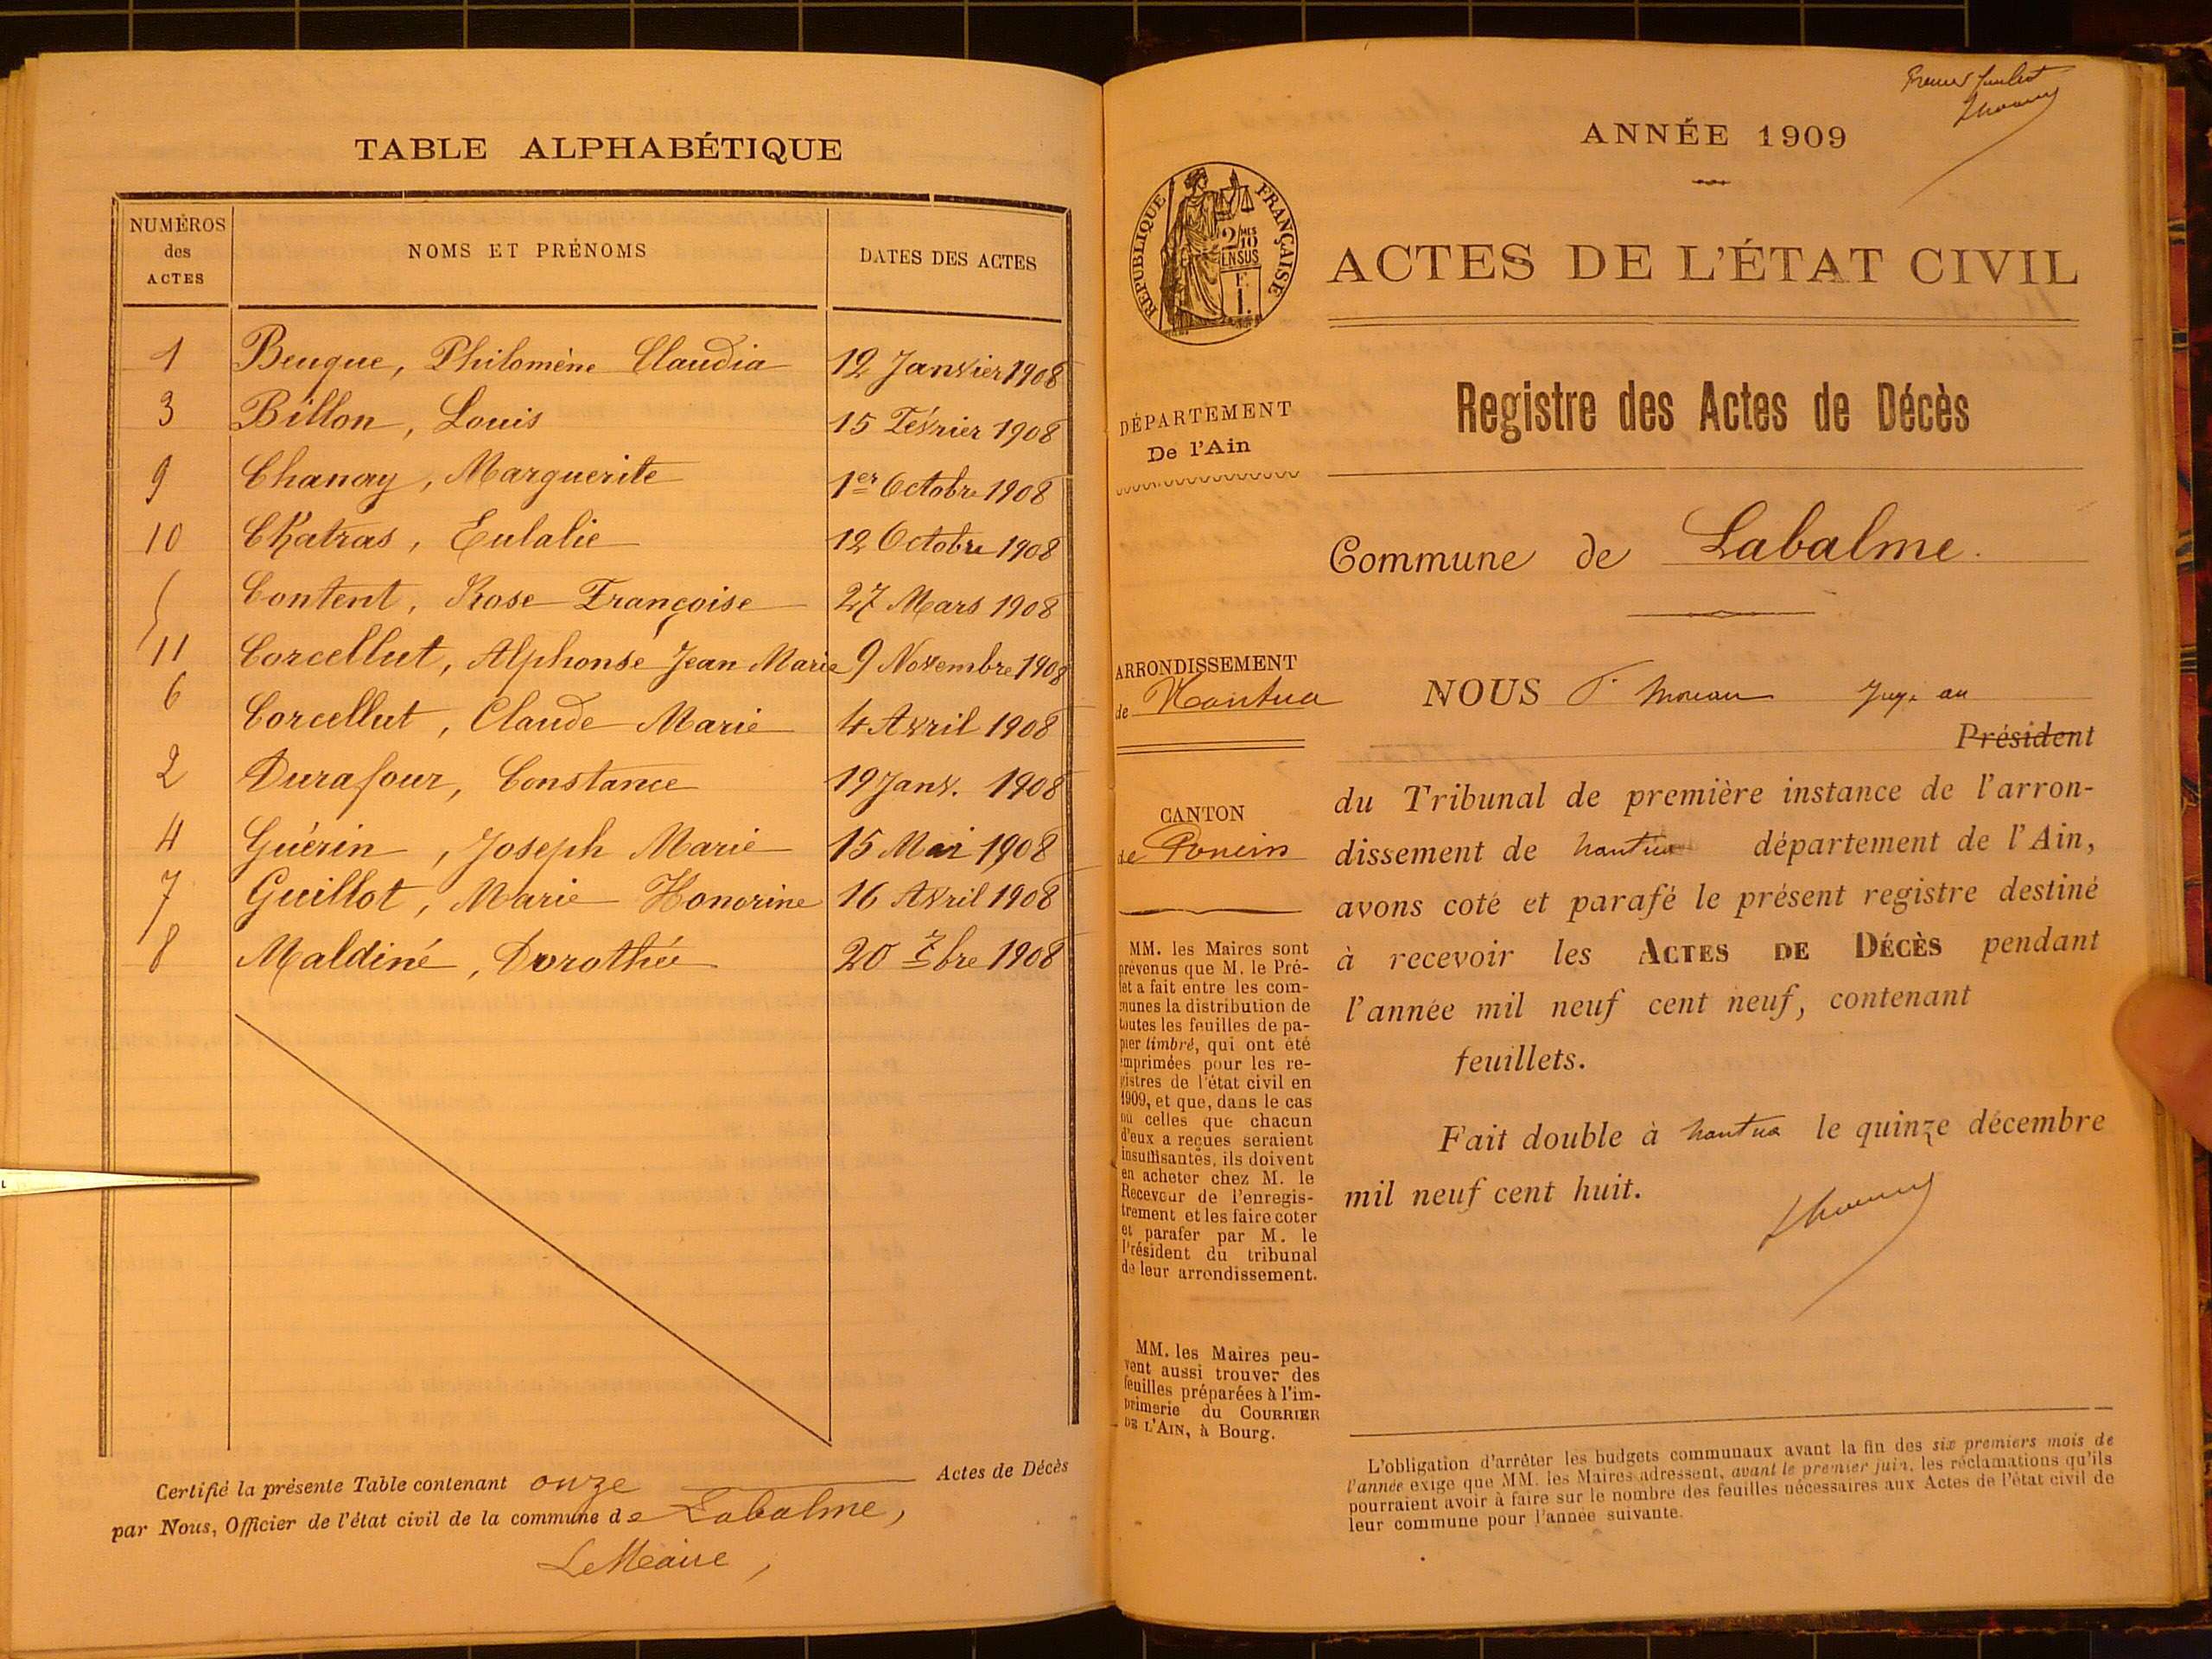 TABLE ALPHABÉTIQUE
NUMÉROS des ACTES
NOMS ET PRÉNOMS
DATES DES ACTES
1 Beuque, Philomène Claudia 12 Janvier 1908
3 Billon, Louis 15 Février 1908
9 Chanay, Marguerite 1er Octobre 1908
10 Chatras, Eulalie 12 Octobre 1908
Content, Rose Françoise 27 Mars 1908
11 Corcellut, Alphonse Jean Marie 9 Novembre 1908
6 Corcellut, Claude Marie 4 Avril 1908
2 Durafour, Constance 19 Janv. 1908
4 Guérin, Joseph Marie 15 Mai 1908
7 Guillot, Marie Honorine 16 Avril 1908
8 Maldiné, Dorothée 20 7bre 1908
Certifié la présente Table contenant onze Actes de Décès
par Nous, Officier de l'état civil de la commune de Labalme,
Le Maire,
ANNÉE 1909
RÉPUBLIQUE FRANÇAISE
2/10 MES
EN SUS
F.
1.
ACTES DE L'ÉTAT CIVIL
Registre des Actes de Décès
DÉPARTEMENT
De l'Ain
Commune de Labalme.
ARRONDISSEMENT
de Nantua
CANTON
de Poncin
MM. les Maires sont
prévenus que M. le Pré-
fet a fait entre les com-
munes la distribution de
toutes les feuilles de pa-
pier timbré, qui ont été
imprimées pour les re-
gistres de l'état civil en
1909, et que, dans le cas
où celles que chacun
d'eux a reçues seraient
insuffisantes, ils doivent
en acheter chez M. le
Receveur de l'enregis-
trement et les faire coter
et parafer par M. le
Président du tribunal
de leur arrondissement.
MM. les Maires peu-
vent aussi trouver des
feuilles préparées à l'im-
primerie du COURRIER
DE L'AIN, à Bourg.
NOUS Juge au
Président
du Tribunal de première instance de l'arron-
dissement de nantua département de l'Ain,
avons coté et parafé le présent registre destiné
à recevoir les ACTES DE DÉCÈS pendant
l'année mil neuf cent neuf, contenant
feuillets.
Fait double à nantua le quinze décembre
mil neuf cent huit.
L'obligation d'arrêter les budgets communaux avant la fin des six premiers mois de
l'année exige que MM. les Maires adressent, avant le premier juin, les réclamations qu'ils
pourraient avoir à faire sur le nombre des feuilles nécessaires aux Actes de l'état civil de
leur commune pour l'année suivante.